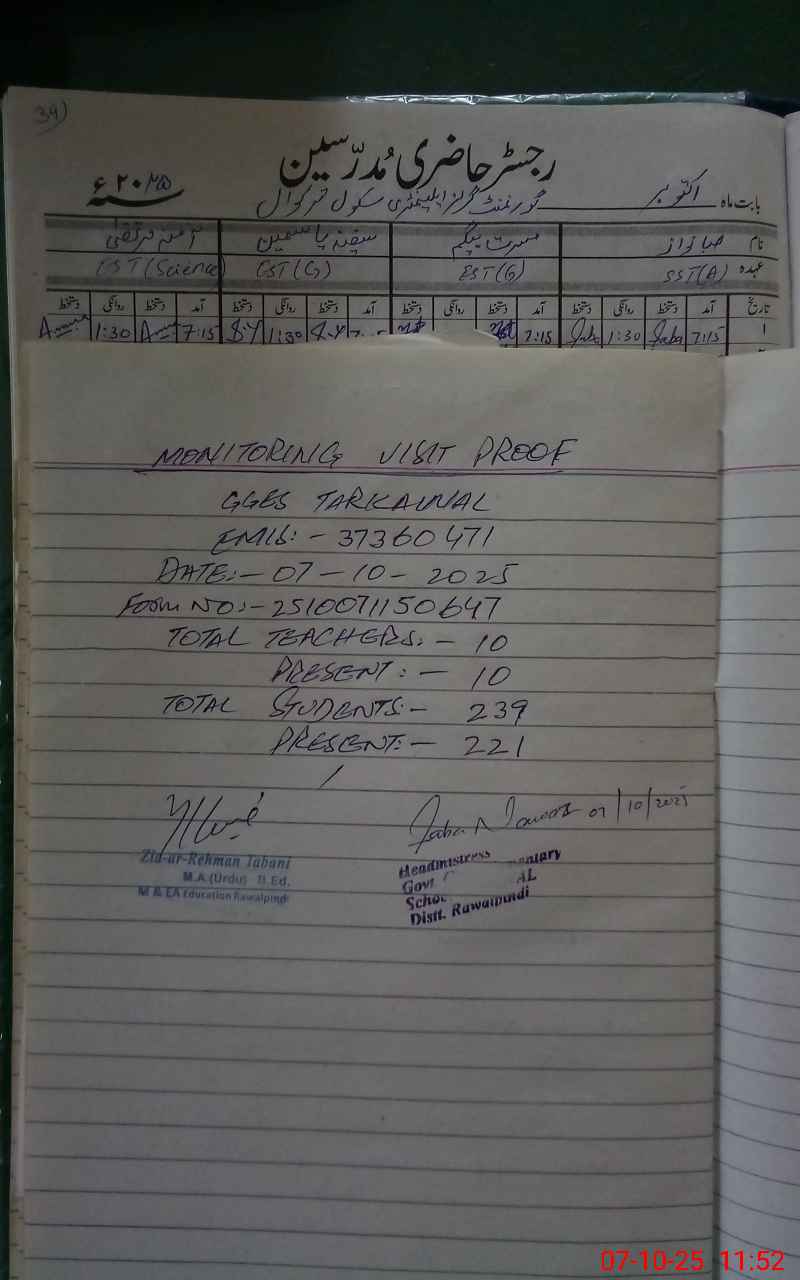 39)
رجسٹر حاضری مُدرّسین
بابت ماہ اکتوبر گورنمنٹ گرلز ایلیمنٹری سکول ترکوال سنہ ۲۰۲۵ء
نام صبا نواز مسرت بیگم سفینہ یاسمین آمنہ مرتضیٰ
عہدہ SST(A) EST(G) EST(G) EST(Science)
تاریخ آمد دستخط روانگی دستخط آمد دستخط روانگی دستخط آمد دستخط روانگی دستخط آمد دستخط روانگی دستخط
۱ 7:15 Saba 1:30 Saba 7:15 1:30 7:15 1:30
MONITORING VISIT PROOF
GGES TARKAWAL
EMIS:- 37360471
DATE:- 07-10-2025
Form NO:- 2510071150647
TOTAL TEACHERS:- 10
PRESENT:- 10
TOTAL STUDENTS:- 239
PRESENT:- 221
Saba Nawaz 07/10/2025
Zia-ur-Rehman Tabani
M.A.(Urdu) B.Ed.
M & EA Education Rawalpindi
Headmistress
Govt
Distt. Rawalpindi
07-10-25 11:52